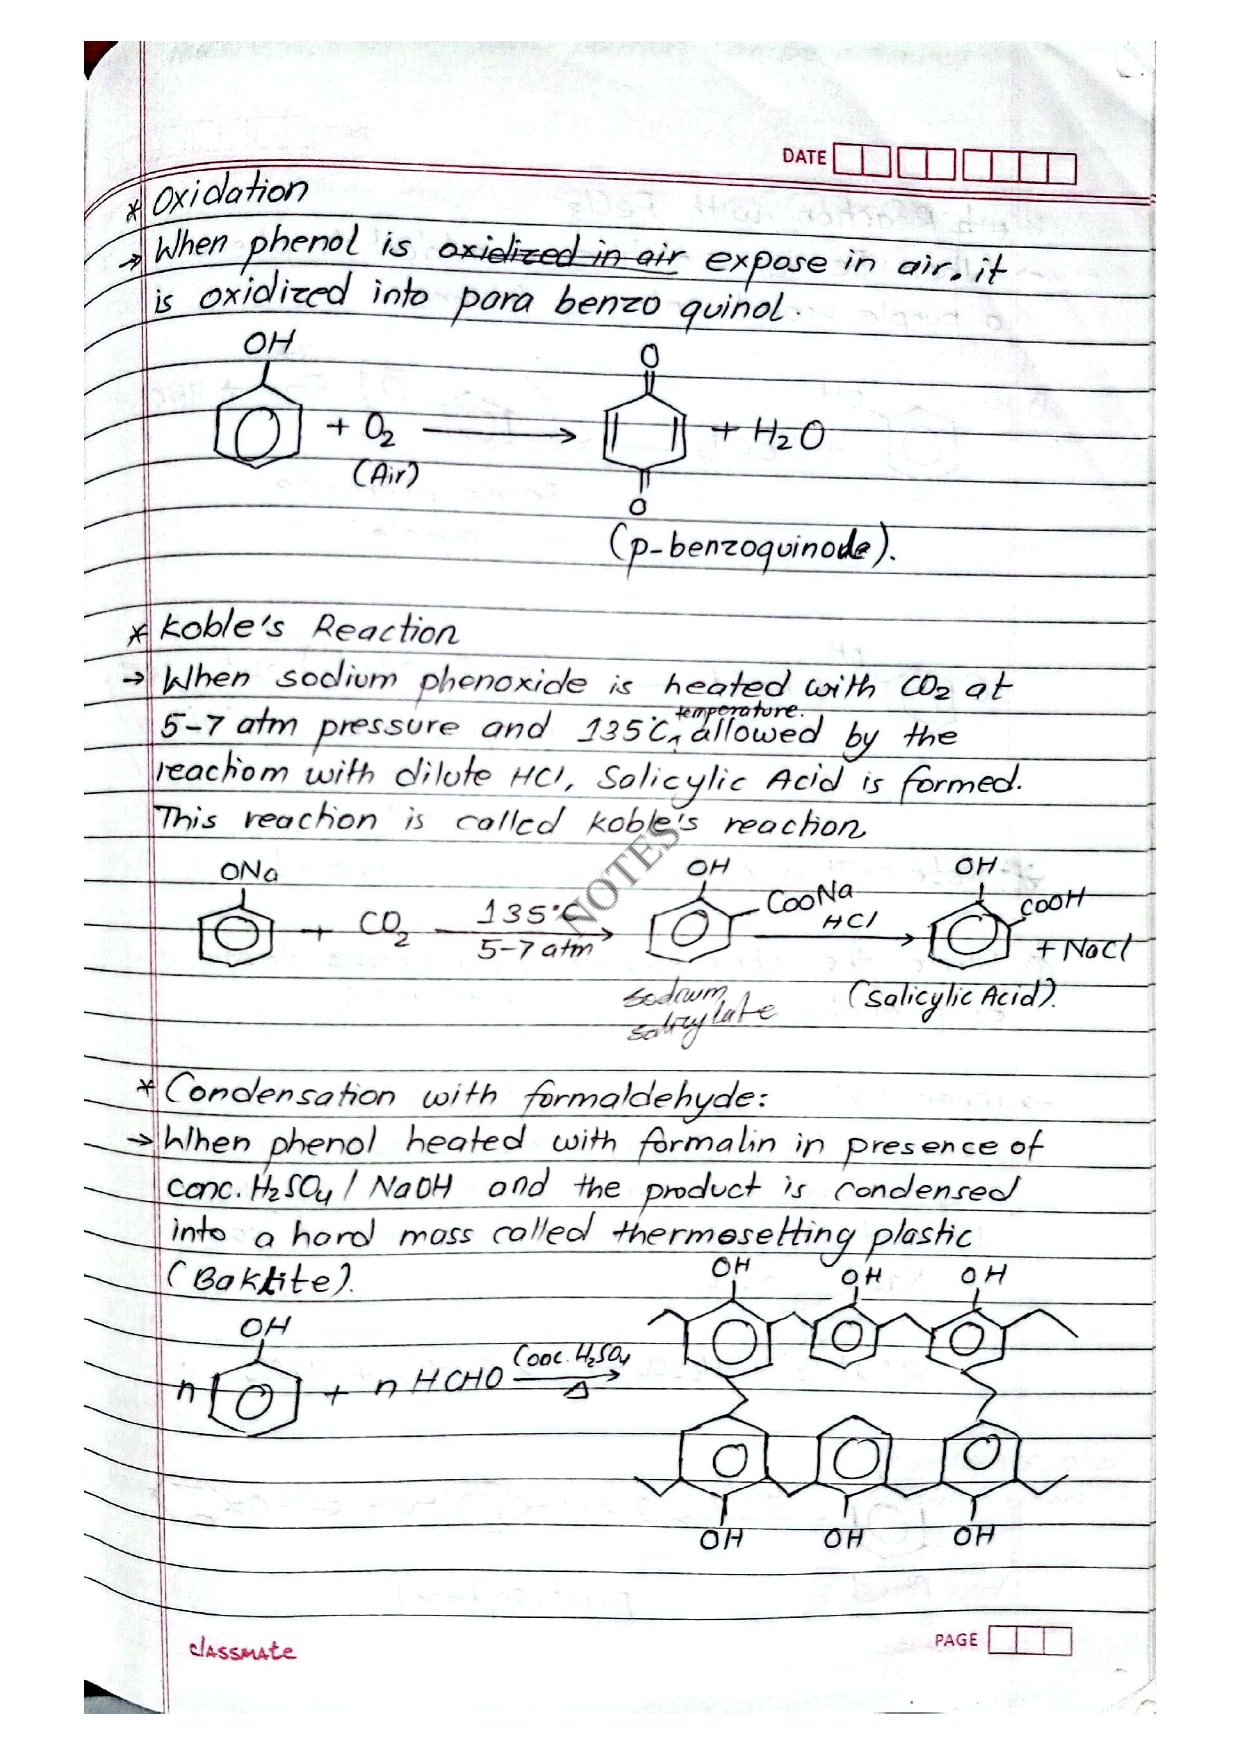 DATE
* Oxidation
→ When phenol is oxidized in air expose in air, it
is oxidized into para benzo quinol.
OH
O
+ O2 → + H2O
(Air)
O
(p-benzoquinode).
* Koble's Reaction
→ When sodium phenoxide is heated with CO2 at
temperature.
5-7 atm pressure and 135°C, allowed by the
reaction with dilute HCl, Salicylic Acid is formed.
This reaction is called Koble's reaction
NOTES
ONa OH OH
+ CO2 135°C 5-7 atm → COONa HCl → COOH + NaCl
sodium (Salicylic Acid).
salicylate
* Condensation with formaldehyde:
→ When phenol heated with formalin in presence of
conc. H2SO4 / NaOH and the product is condensed
into a hard mass called thermosetting plastic
(Baklite).
OH OH OH
OH
n + n HCHO Conc. H2SO4 → Δ
OH OH OH
classmate
PAGE